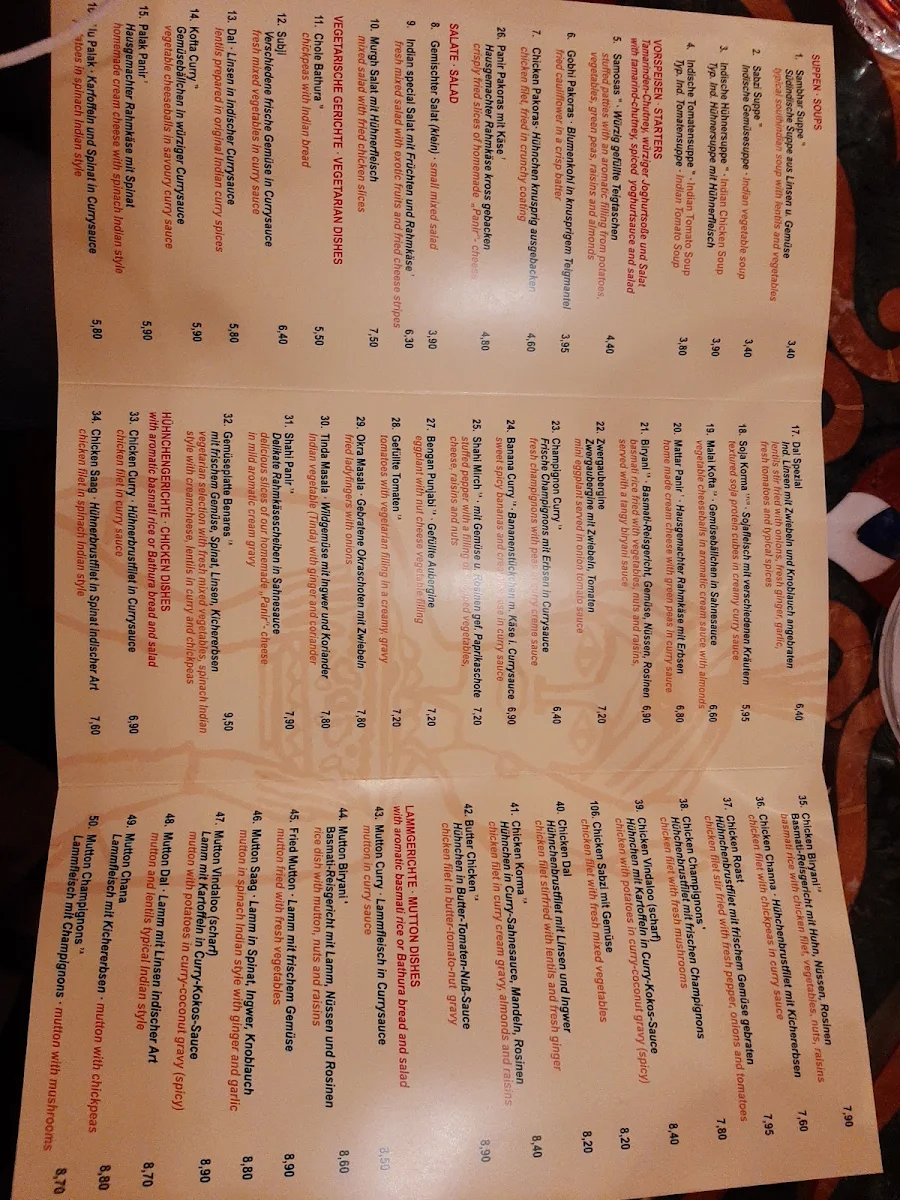 SUPPEN · SOUPS
1. Sambhar Suppe
Südindische Suppe aus Linsen u. Gemüse
typical southindian soup with lentils and vegetables 3,40
2. Sabzi Suppe
Indische Gemüsesuppe · Indian vegetable soup 3,40
3. Indische Hühnersuppe · Indian Chicken Soup
Typ. Ind. Hühnersuppe mit Hühnerfleisch 3,90
4. Indische Tomatensuppe · Indian Tomato Soup
Typ. Ind. Tomatensuppe · Indian Tomato Soup 3,80
VORSPEISEN · STARTERS
Tamarinden-Chutney, würziger Joghurtsoße und Salat
with tamarind-chutney, spiced yoghurtsauce and salad
5. Samosas · Würzig gefüllte Teigtaschen
stuffed patties with an aromatic filling from potatoes,
vegetables, green peas, raisins and almonds 4,40
6. Gobhi Pakoras · Blumenkohl in knusprigem Teigmantel
fried cauliflower in a crisp batter 3,95
7. Chicken Pakoras · Hühnchen knusprig ausgebacken
chicken filet, fried in crunchy coating 4,60
26. Panir Pakoras mit Käse
Hausgemachter Rahmkäse kross gebacken
crisply fried slices of homemade „Panir"- cheese 4,80
SALATE · SALAD
8. Gemischter Salat (klein) · small mixed salad 3,90
9. Indian special Salat mit Früchten und Rahmkäse
fresh mixed salad with exotic fruits and fried cheese stripes 6,30
10. Murgh Salat mit Hühnerfleisch
mixed salad with fried chicken slices 7,50
VEGETARISCHE GERICHTE · VEGETARIAN DISHES
11. Chole Bathura
chickpeas with Indian bread 5,50
12. Subji
Verschiedene frische Gemüse in Currysauce
fresh mixed vegetables in curry sauce 6,40
13. Dal · Linsen in Indischer Currysauce
lentils prepared in original Indian curry spices 5,80
14. Kofta Curry
Gemüsebällchen in würziger Currysauce
vegetable cheeseballs in savoury curry sauce 5,90
15. Palak Panir
Hausgemachter Rahmkäse mit Spinat
homemade cream cheese with spinach Indian style 5,90
Palak · Kartoffeln und Spinat in Currysauce
in spinach Indian style 5,80
17. Dal Spezial
Ind. Linsen mit Zwiebeln und Knoblauch angebraten
lentils stir fried with onions, fresh ginger, garlic,
fresh tomatoes and typical spices 6,40
18. Soja Korma · Sojafleisch mit verschiedenen Kräutern
textured soja protein cubes in creamy curry sauce 5,95
19. Malai Kofta · Gemüsebällchen in Sahnesauce
vegetable cheeseballs in aromatic cream sauce with almonds 6,60
20. Mattar Panir · Hausgemachter Rahmkäse mit Erbsen
home made cream cheese with green peas in curry sauce 6,80
21. Biryani · Basmati-Reisgericht. Gemüse, Nüssen, Rosinen 6,90
basmati rice fried with vegetables, nuts and raisins,
served with a tangy biryani sauce
22. Zwergaubergine
Zwergaubergine mit Zwiebeln, Tomaten
mini eggplant served in onion tomato sauce 7,20
23. Champignon Curry
Frische Champignons mit Erbsen in Currysauce
fresh champignons with peas curry creme sauce 6,40
24. Banana Curry · Bananenstückchen m. Käse i. Currysauce 6,90
sweet bananas and in curry sauce
25. Shahi Mirch · mit Gemüse u. Rosinen gef. Paprikaschote 7,20
stuffed pepper with a filling of mixed vegetables,
cheese, raisins and nuts
27. Bengan Punjabi · Gefüllte Aubergine
eggplant with nut cheese vegetable filling 7,20
28. Gefüllte Tomaten
tomatoes with vegetarian filling in a creamy, gravy 7,20
29. Okra Masala · Gebratene Okraschoten mit Zwiebeln
fried ladyfingers with onions 7,80
30. Tinda Masala · Wildgemüse mit Ingwer und Koriander
Indian vegetable (Tinda) with ginger and coriander 7,80
31. Shahi Panir
Delikate Rahmkäsescheiben in Sahnesauce
delicious slices of our homemade „Panir"- cheese
in mild aromatic cream gravy 7,90
32. Gemüseplatte Benares
mit frischem Gemüse, Spinat, Linsen u. Kichererbsen
vegetarian selection with fresh mixed vegetables, spinach Indian
style with creamcheese, lentils in curry and chickpeas 9,50
HÜHNCHENGERICHTE · CHICKEN DISHES
with aromatic basmati rice or Bathura bread and salad
33. Chicken Curry · Hühnerbrustfilet in Currysauce
chicken filet in curry sauce 6,90
34. Chicken Saag · Hühnerbrustfilet in Spinat Indischer Art
chicken filet in spinach Indian style 7,60
35. Chicken Biryani
Basmati-Reisgericht mit Huhn, Nüssen, Rosinen
basmati rice with chicken filet, vegetables, nuts, raisins 7,90
36. Chicken Channa · Hühchenbrustfilet mit Kichererbsen
chicken filet with chickpeas in curry sauce 7,60
37. Chicken Roast
Hühnchenbrustfilet mit frischem Gemüse gebraten
chicken filet stir fried with fresh pepper, onions and tomatoes 7,95
38. Chicken Champignons
Hühnchenbrustfilet mit frischen Champignons
chicken filet with fresh mushrooms 7,80
39. Chicken Vindaloo (scharf)
Hühnchen mit Kartoffeln in Curry-Kokos-Sauce
chicken with potatoes in curry-coconut gravy (spicy) 8,40
106. Chicken Sabzi mit Gemüse
chicken filet with fresh mixed vegetables 8,20
40. Chicken Dal
Hühnchenbrustfilet mit Linsen und Ingwer
chicken filet stirfried with lentils and fresh ginger 8,20
41. Chicken Korma
Hühnchen in Curry-Sahnesauce, Mandeln, Rosinen
chicken filet in curry cream gravy, almonds and raisins 8,40
42. Butter Chicken
Hühnchen in Butter-Tomaten-Nuß-Sauce
chicken filet in butter-tomato-nut gravy 8,90
LAMMGERICHTE · MUTTON DISHES
with aromatic basmati rice or Bathura bread and salad
43. Mutton Curry · Lammfleisch in Currysauce
mutton in curry sauce 8,50
44. Mutton Biryani
Basmati-Reisgericht mit Lamm, Nüssen und Rosinen
rice dish with mutton, nuts and raisins 8,60
45. Fried Mutton · Lamm mit frischem Gemüse
mutton fried with fresh vegetables 8,90
46. Mutton Saag · Lamm in Spinat, Ingwer, Knoblauch
mutton in spinach Indian style with ginger and garlic 8,80
47. Mutton Vindaloo (scharf)
Lamm mit Kartoffeln in Curry-Kokos-Sauce
mutton with potatoes in curry-coconut gravy (spicy) 8,90
48. Mutton Dal · Lamm mit Linsen Indischer Art
mutton and lentils typical Indian style 8,70
49. Mutton Chana
Lammfleisch mit Kichererbsen · mutton with chickpeas 8,80
50. Mutton Champignons
Lammfleisch mit Champignons · mutton with mushrooms 8,70